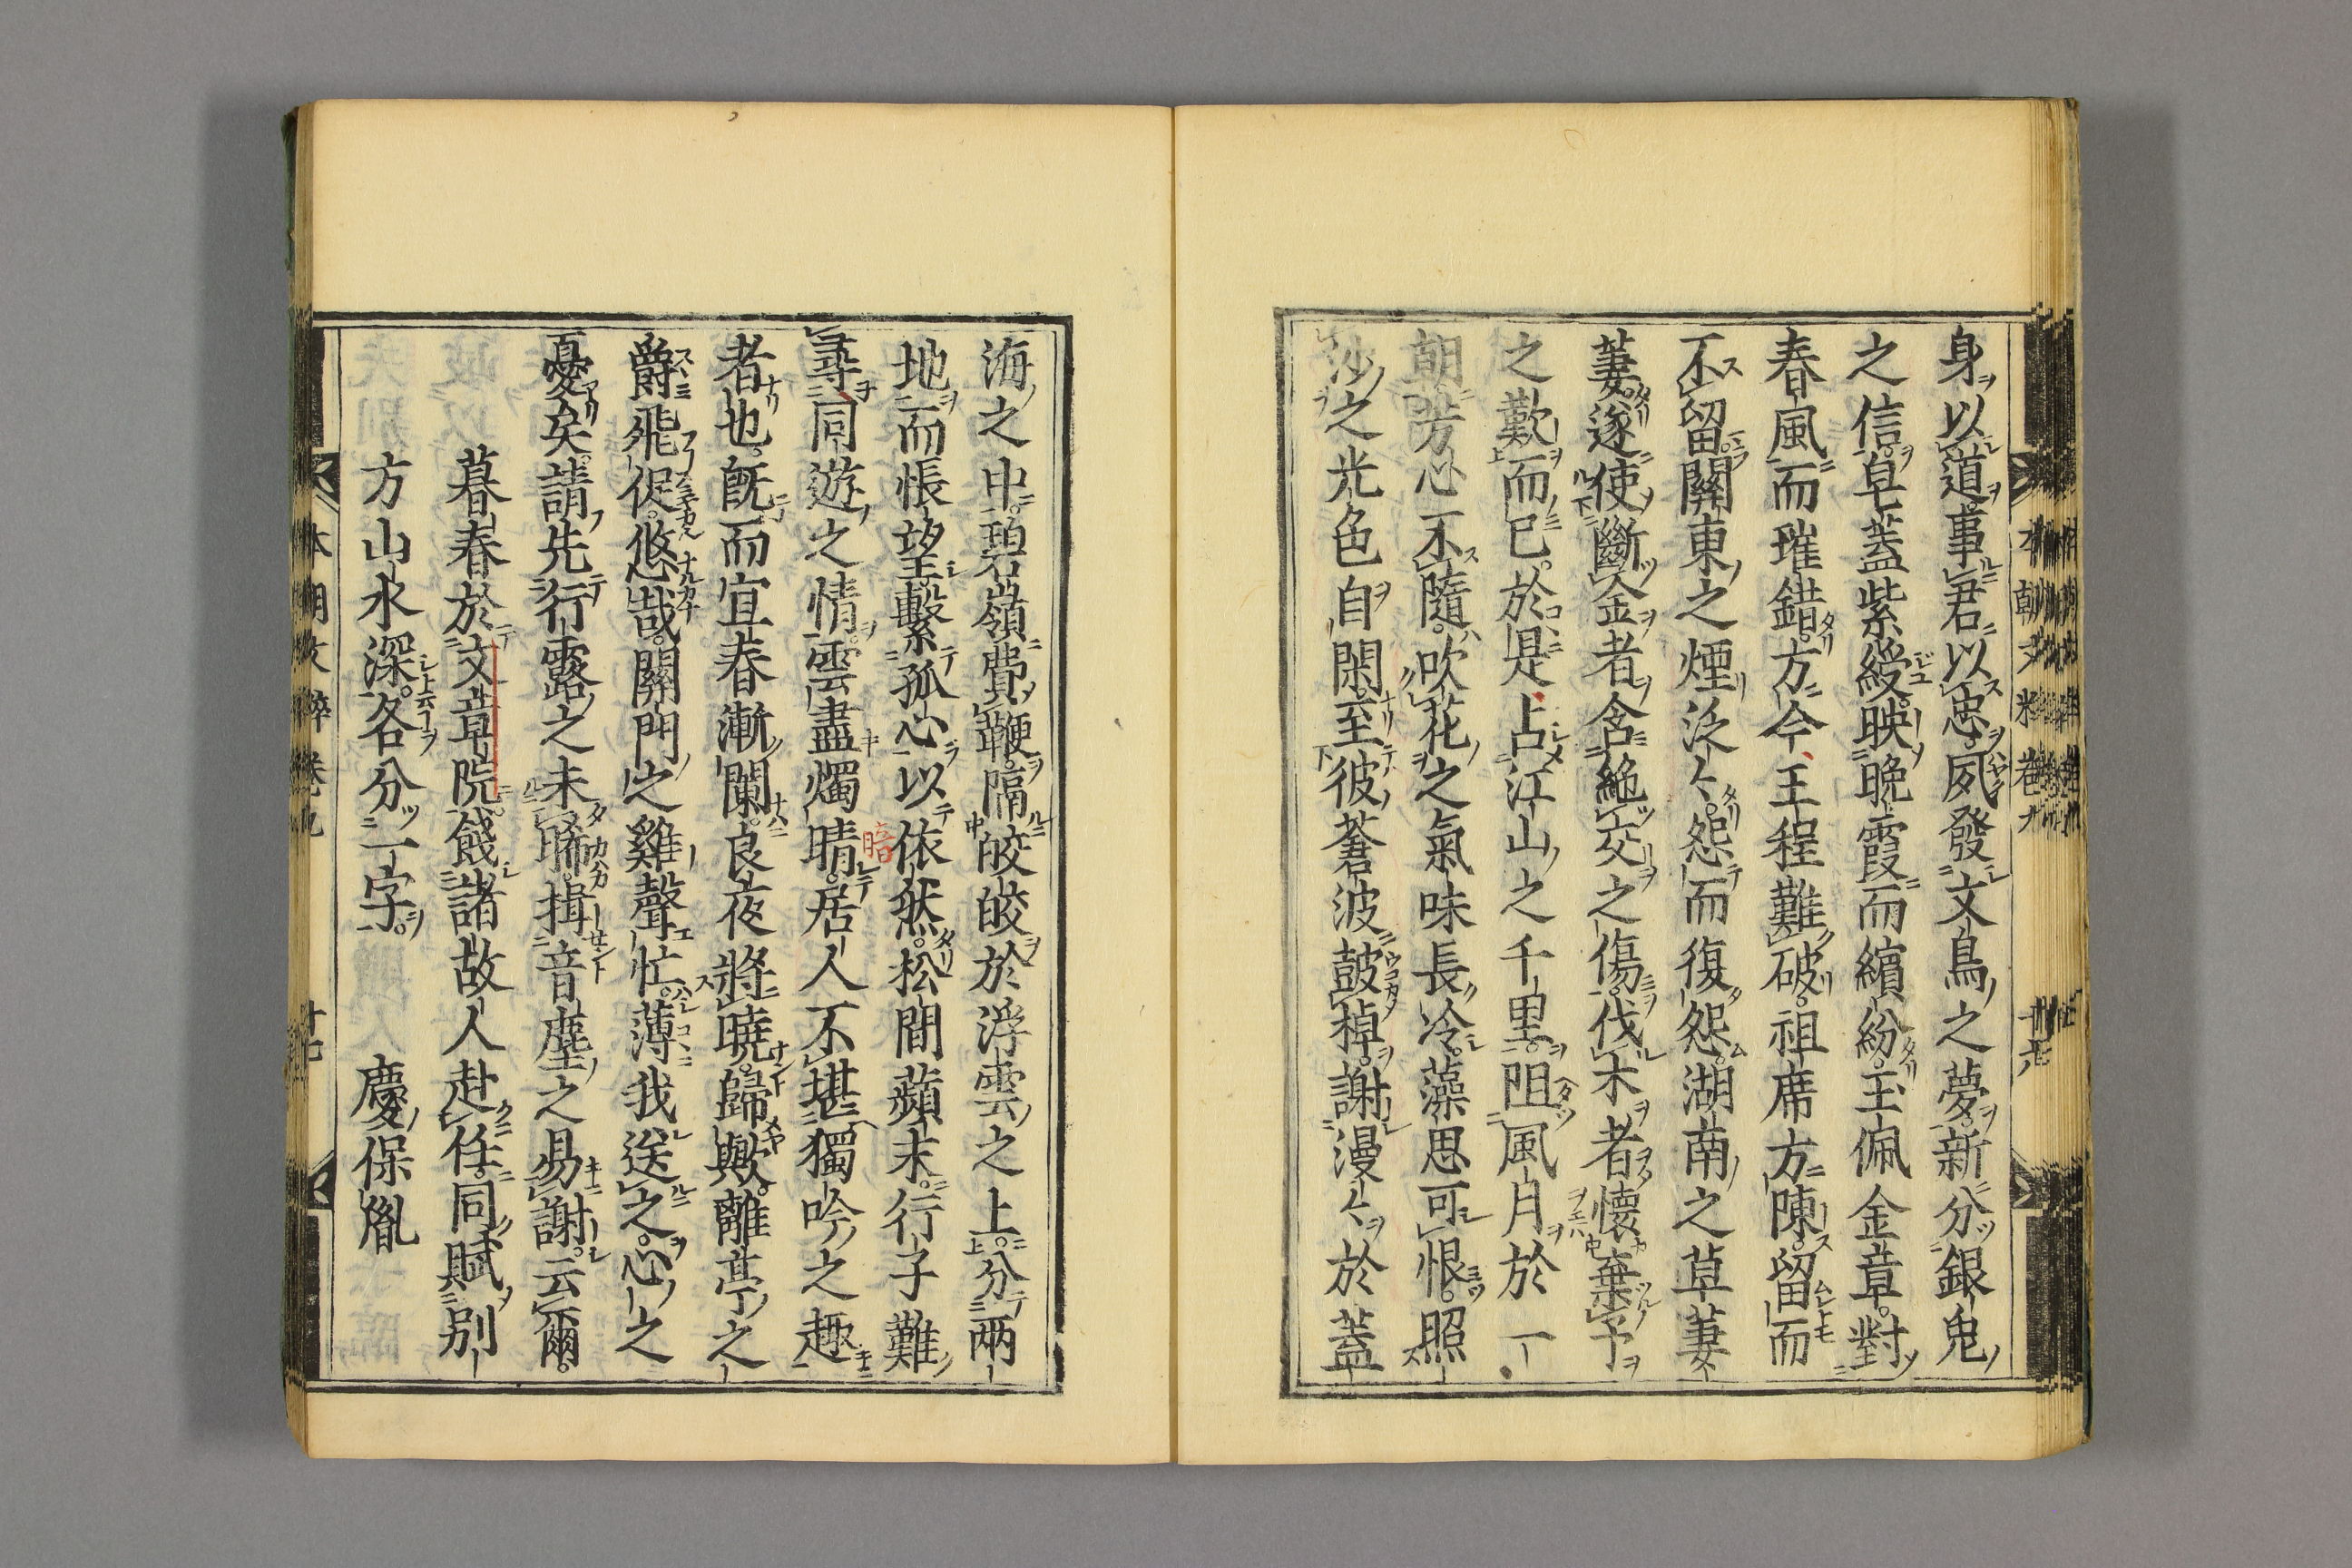 身以道事君以忠夙發文鳥之夢新分銀兎
之信皀蓋紫綬映晩霞而繽紛玉佩金章對
春風而璀錯方今王程難破祖席方陳留而
不留關東之煙泛々怨而復怨湖南之草萋
萋遂使斷金者含絶交之傷伐木者懷棄予
之歎而已於是占江山之千里阻風月於一
朝芳心不隨吹花之氣味長冷藻思可恨照
沙之光色自閑至彼蒼波鼓棹謝漫々於蓋
海之中碧嶺費鞭隔皎皎於浮雲之上分兩
地而悵望繫孤心以依然松間蘋末行子難
尋同遊之情雲盡燭晴居人不堪獨吟之趣
暗
者也既而宜春漸闌良夜將曉歸歟離亭之
爵飛促悠哉關門之雞聲忙薄我送之心之
憂矣請先行露之未晞揖音塵之易謝云爾
暮春於文章院餞諸故人赴任同賦別
方山水深各分一字 慶保胤
本朝文粹卷九
十七